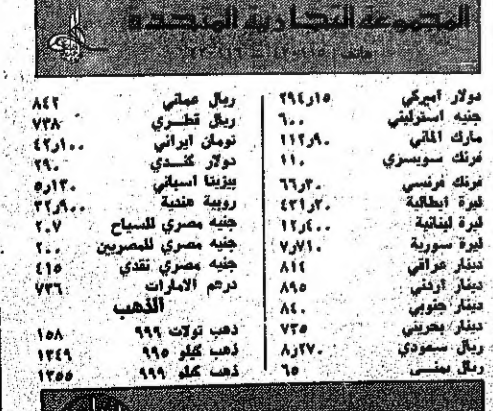 المجموعة التجارية المتحدة
دولار أميركي ٢٩٤٫١٥
جنيه استرليني ٦٠٠
مارك ألماني ١١٢٫٠٩
فرنك سويسري ١١٠
فرنك فرنسي ٦٦٫٣٠
ليرة ايطالية ٤٣١٫٢٠
ليرة لبنانية ١٢٫٤٠٠
ليرة سورية ٧٫٧١٠
دينار عراقي ٨١٤
دينار اردني ٨٩٥
دينار جنوبي ٨٤٠
دينار بحريني ٧٣٥
ريال سعودي ٨٫٢٧٠
ريال يمنـي ٦٥
ريال عماني ٨٤٢
ريال قطـري ٧٣٨
تومان ايراني ٤٢٫٠٠١
دولار كنـدي ٢٩٠
بيزيتا اسباني ٥٫١٣٠
روبية هندية ٣٢٫٩٠٠
جنيه مصري للسياح ٢٠٧
جنيه مصري للمصريين ٢٠٠
جنيه مصري نقدي ٤١٥
درهم الامارات ٧٣٦
الذهب
ذهب تولات ٩٩٩ ١٥٨
ذهب كيلو ٩٩٥ ١٣٤٩
ذهب كيلو ٩٩٩ ١٣٥٥